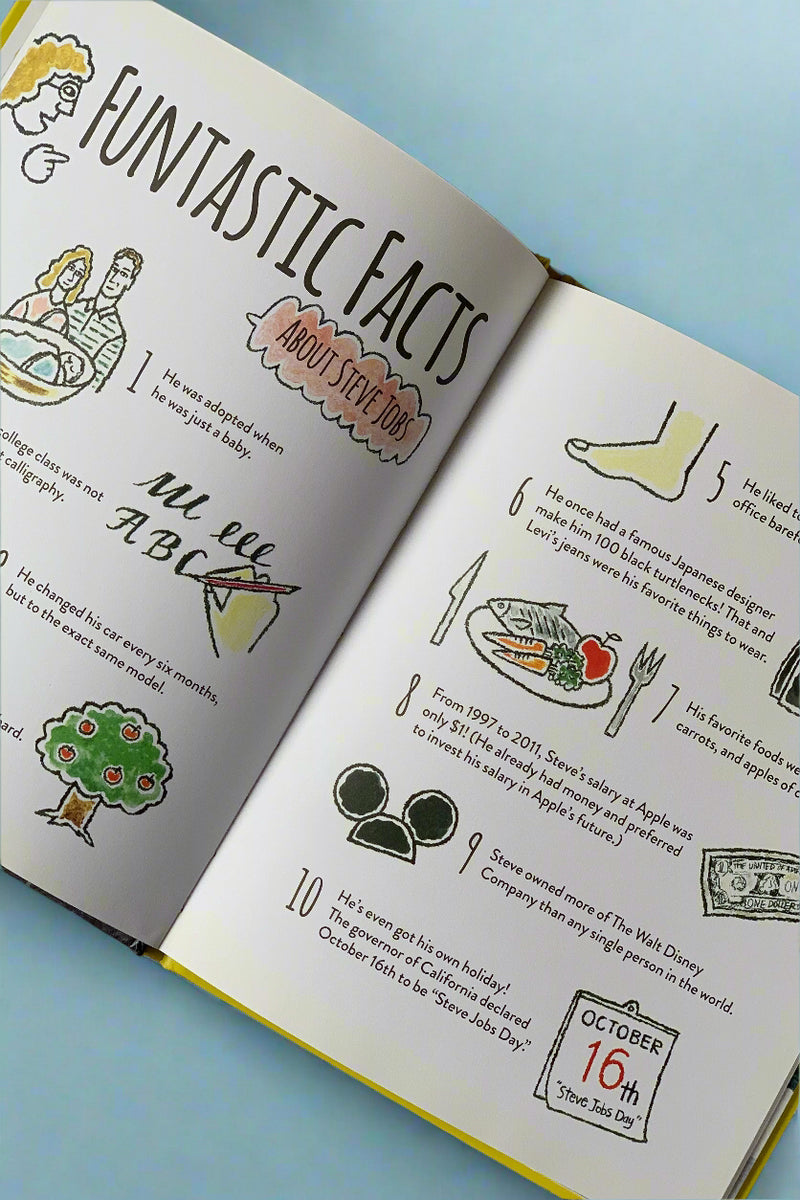 FUNTASTIC FACTS
ABOUT STEVE JOBS
1
He was adopted when
he was just a baby.
college class was not
calligraphy.
ABC
He changed his car every six months,
but to the exact same model.
5
He liked
office
6
He once had a famous Japanese designer
make him 100 black turtlenecks! That and
Levi's jeans were his favorite things to wear.
7
His favorite foods
carrots, and apples of
8
From 1997 to 2011, Steve's salary at Apple was
only $1! (He already had money and preferred
to invest his salary in Apple's future.)
THE UNITED OF
ON
ONE DOLLAR
9
Steve owned more of The Walt Disney
Company than any single person in the world.
10
He's even got his own holiday!
The governor of California declared
October 16th to be "Steve Jobs Day."
OCTOBER
16th
"Steve Jobs Day"